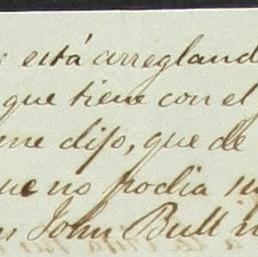 está arregland
que tiene con el
me dijo, que de
que no podia
John Bull